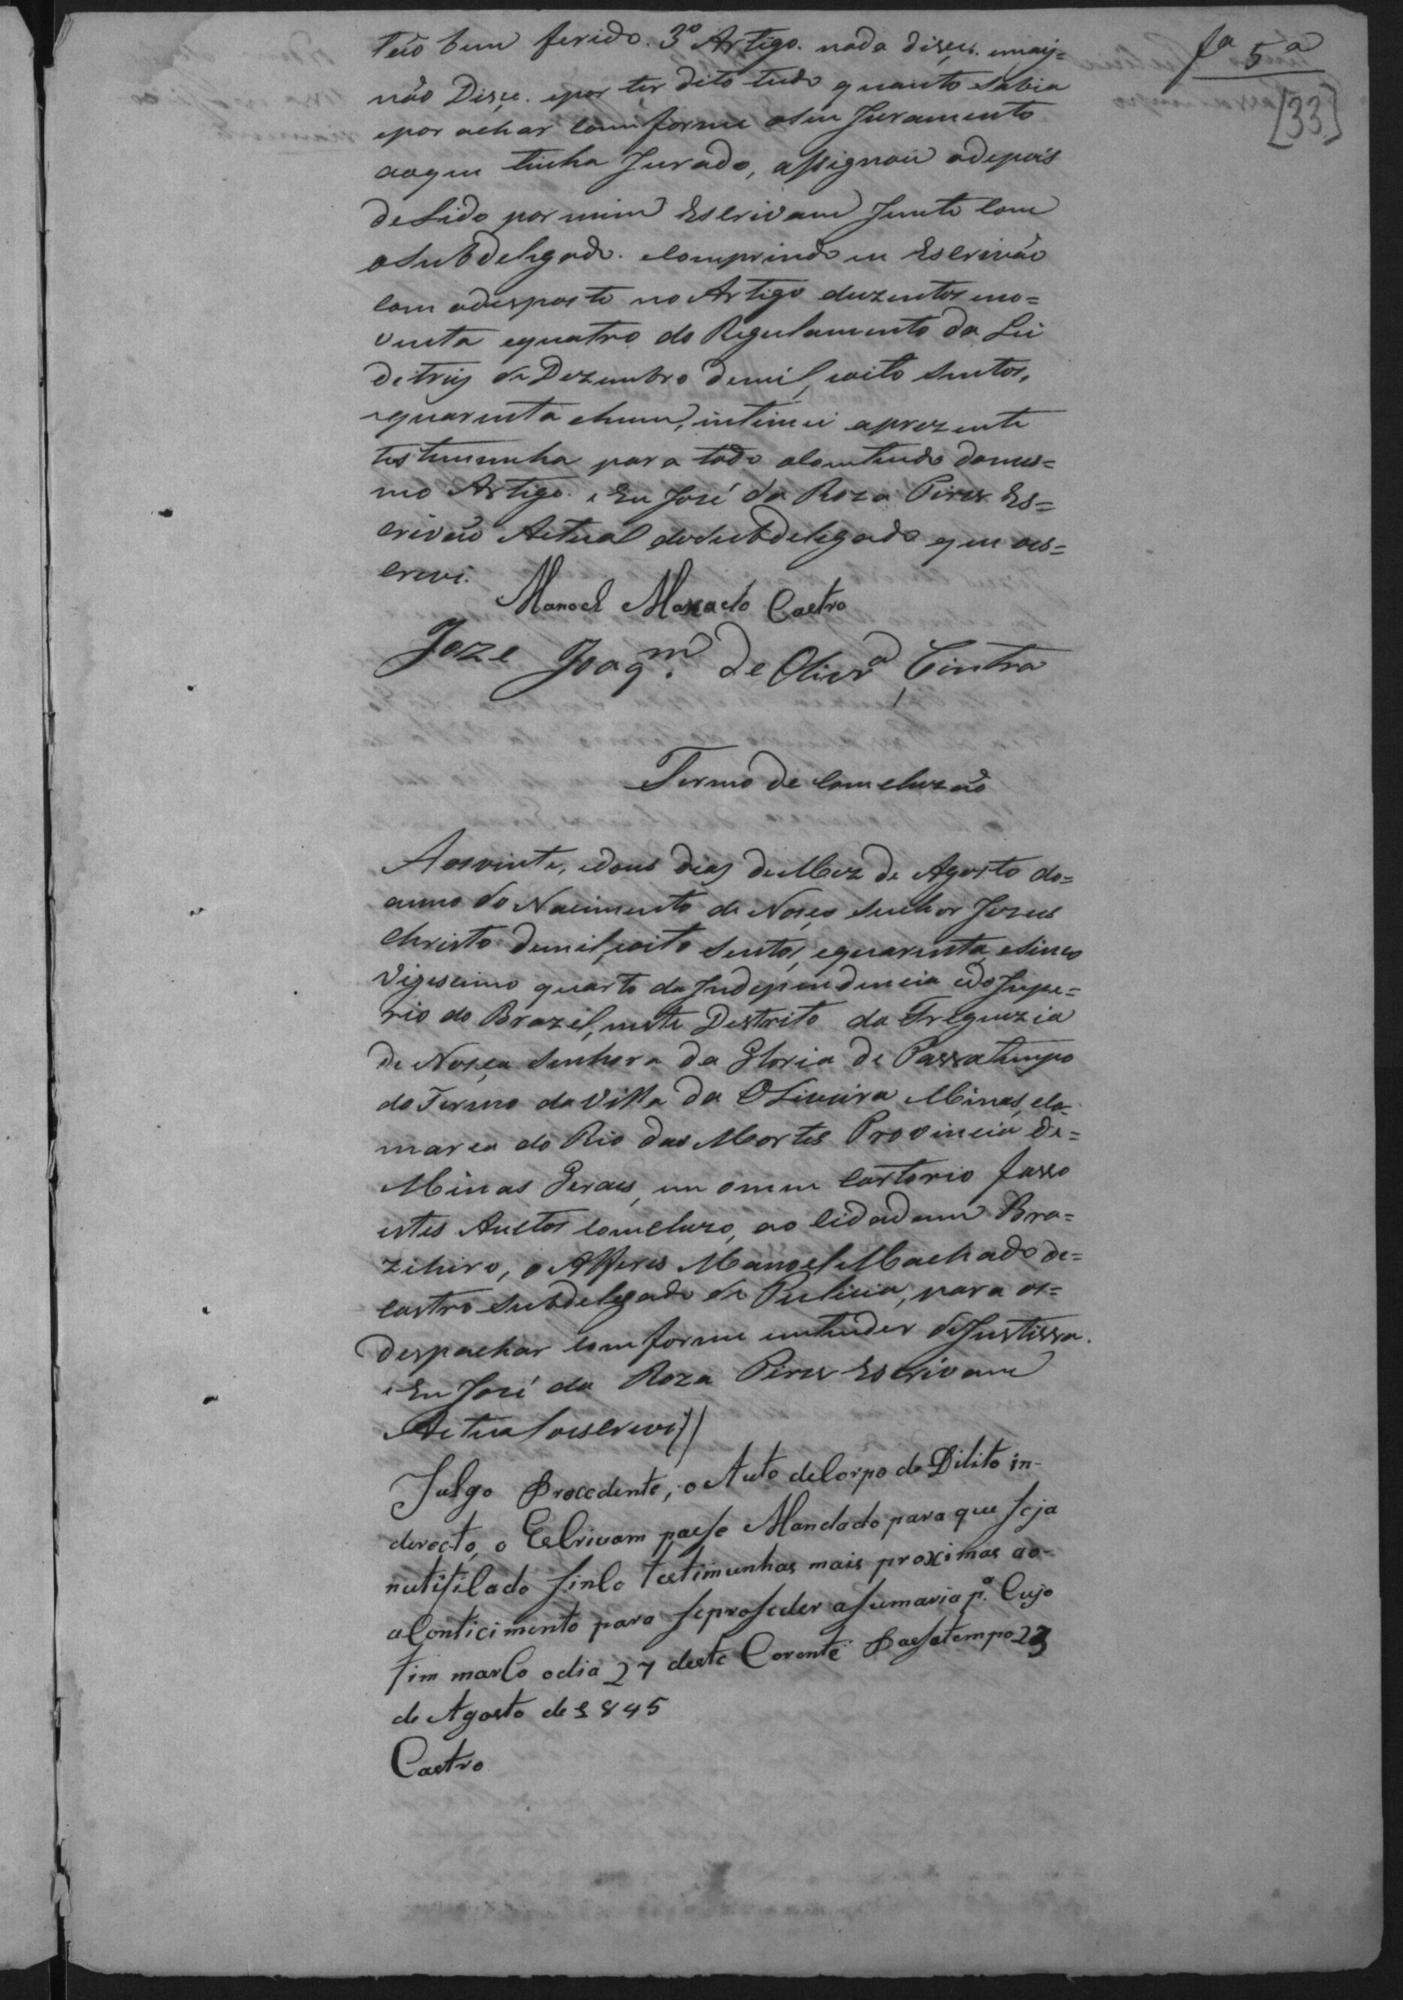 fª 5ª
[33]
tão bem ferido. 3º Artigo. nada diçeu. emaiz=
não Diçe. epor ter dito tudo quanto sabia
epor achar comforme oseu Juramento
aoque tinha Jurado, assignou odepois
deLido por mim Escrivam Junto com
oSubdelegado. eComprindo eu Escrivão
com odesposto no Artigo duzentos eno=
venta equatro do Regulamento da Lei
detriz de Dezembro demil, oito Sentos,
equarenta ehum, intimei aprezente
testemunha para todo oComteudo domes=
mo Artigo. Eu José da Roza Pires Es=
crivão Actual doSubdelegado que oes=
crevi.
Manoel Maxado Castro
Joze Joaqm. de Olivrª Cintra
Termo de Comcluzão
Aosvinte, edous dias doMez de Agosto do=
anno do Nacimento de Noço Senhor Jezus
Christo demil, oito Sentos, equarenta, esinco
Vigescimo quarto da Independencia edo Impe=
rio do Brazil, neste Destrito da Freguezia
de Noça Senhora da Gloria de Passatempo
do Termo da Villa da Oliveira, Minas, Co=
marca do Rio das Mortes Provincia de=
Minas Gerais, em omeu Cartorio fasso
estes Auctos Comcluzo, ao Cidadam Bra=
zileiro, o Alferes Manoel Machado de=
Castro Subdelegado de Pulicia, para os=
despachar Comforme emtender deJustissa.
Eu José da Roza Pires Escrivam
Actual oescrevi //
Julgo Procedente, o Auto deCorpo de Dilito in-
derecto, o Escrivam passe Mandado para que seja
nutifilado sinco testimunhas mais proximas ao-
aConticimento para seproseder asumaria pª. Cujo
fim marCo odia 27 deste Corente Passatempo 23
de Agosto de 1845
Castro